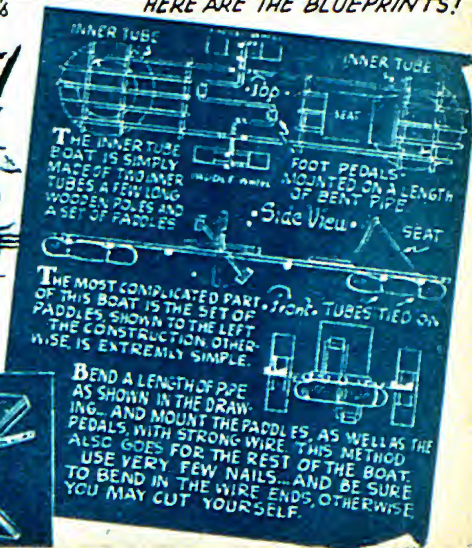 HERE ARE THE BLUEPRINTS!
INNER TUBE
INNER TUBE
•Top•
SEAT
THE INNER TUBE
BOAT IS SIMPLY
MADE OF TWO INNER
TUBES A FEW LONG
WOODEN POLES AND
A SET OF PADDLES
PADDLE WHEEL
FOOT PEDALS-
MOUNTED ON A LENGTH
OF BENT PIPE
•Side View•
SEAT
THE MOST COMPLICATED PART
OF THIS BOAT IS THE SET OF
PADDLES, SHOWN TO THE LEFT
THE CONSTRUCTION, OTHER-
WISE, IS EXTREMLY SIMPLE.
•front•
TUBES TIED ON
BEND A LENGTH OF PIPE
AS SHOWN IN THE DRAW-
ING... AND MOUNT THE PADDLES, AS WELL AS THE
PEDALS, WITH STRONG WIRE. THIS METHOD
ALSO GOES FOR THE REST OF THE BOAT.
USE VERY FEW NAILS... AND BE SURE
TO BEND IN THE WIRE ENDS, OTHERWISE
YOU MAY CUT YOURSELF.